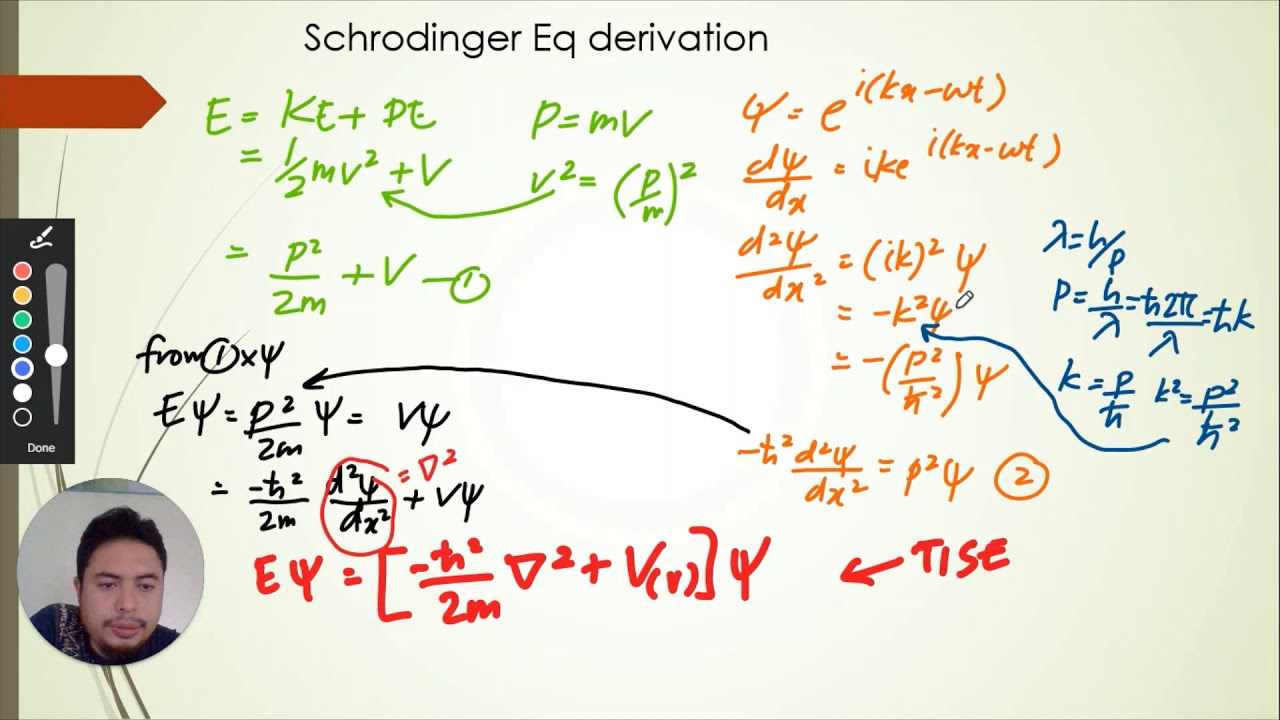 Schrodinger Eq derivation
E = KE + PE
= 1/2 mv² + V
= p²/2m + V — ①
P = mv
v² = (p/m)²
ψ = e^i(kx-wt)
dψ/dx = ike^i(kx-wt)
d²ψ/dx² = (ik)² ψ
= -k²ψ
= -(p²/ħ²) ψ
-ħ² d²ψ/dx² = p²ψ ②
λ = h/p
P = h/λ = ħ2π/λ = ħk
k = p/ħ k² = p²/ħ²
from ① x ψ
Eψ = p²/2m ψ = Vψ
= -ħ²/2m d²ψ/dx² + Vψ
= ∇²
Eψ = [-ħ²/2m ∇² + V(r)] ψ ← TISE
Done